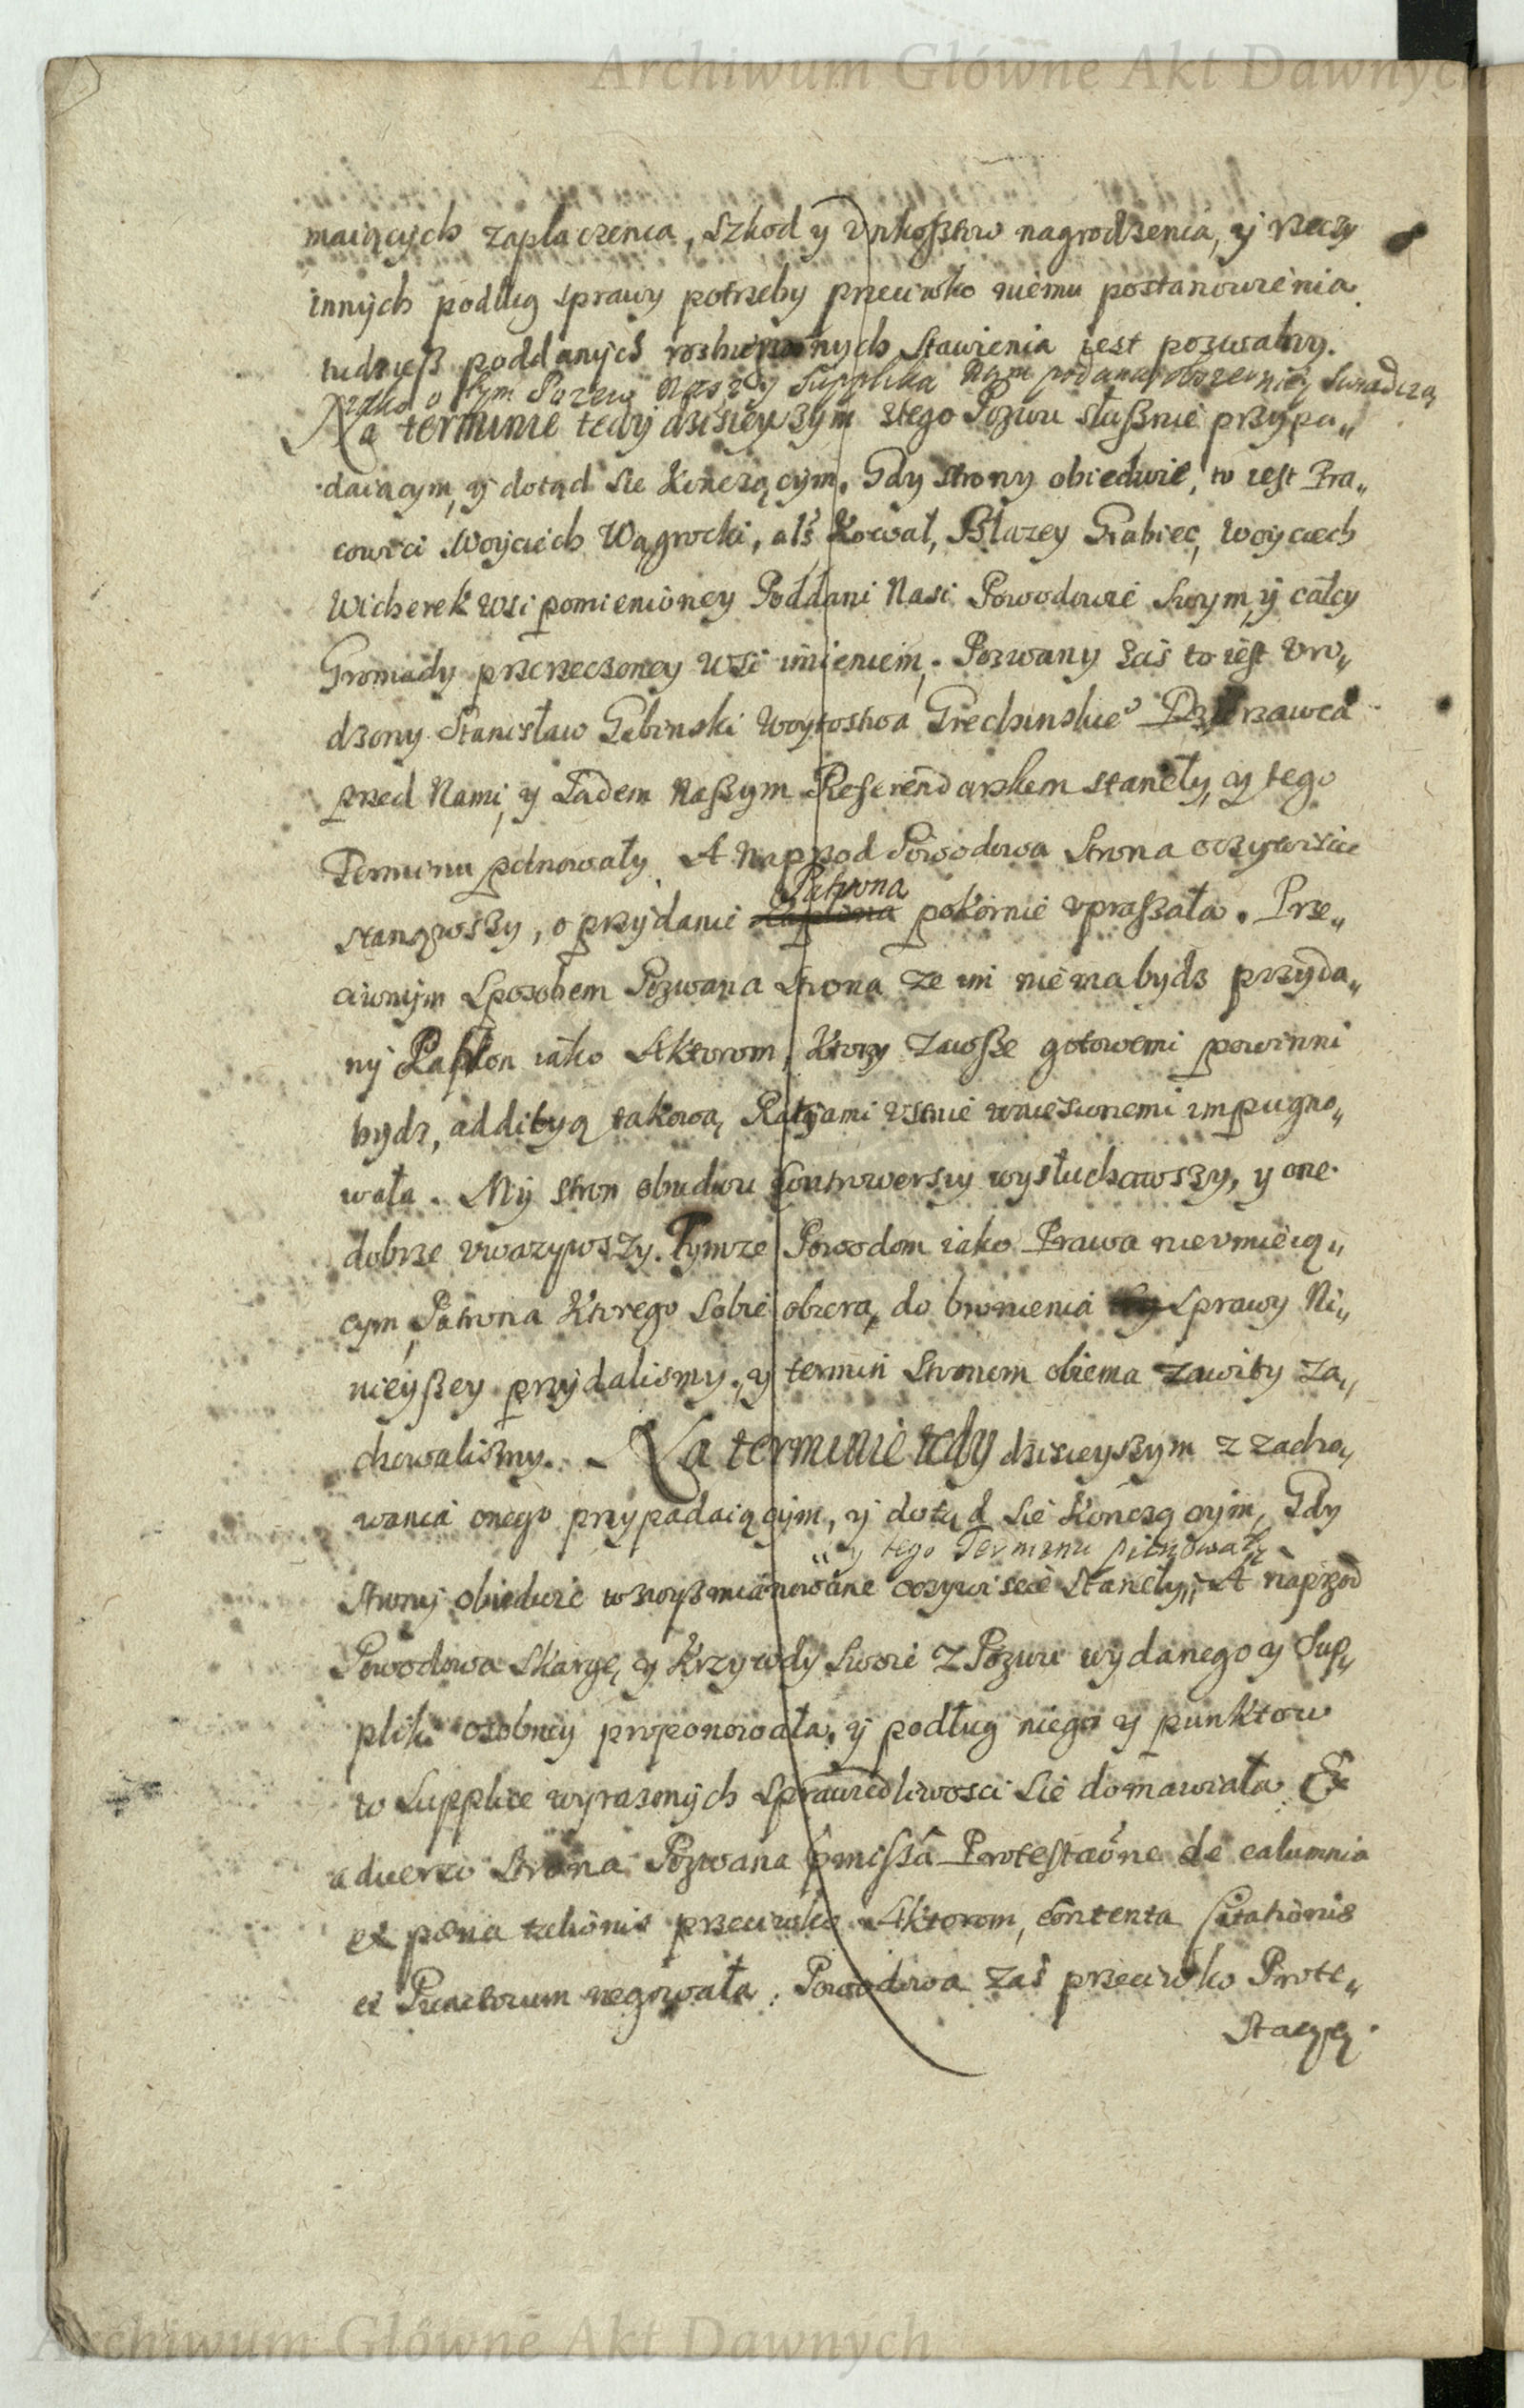 Archiwum Główne Akt Dawnych
maiących zapłaczenia, Szkod y Unkosztow nagrodzenia, y rzeczy
innych podług Sprawy potrzeby przeciwko niemu postanowienia.
tudzieß poddanych Stawienia iest pozwany.
iako o tym Pozew Nasz y Supplika Nam podana obszerniey Swiadczą
Na terminie tedy dzisieyszym ztego Pozwu słußnie przypa„
daiącym, y dotąd Sie Konczącym. Gdy Strony obiedwie, to iest Pra„
cowici Woyciech Wągrocki, als Kowal, Błazey Grabiec, Woyciech
Wicherek wsi pomienioney Poddani Nasi Powodowie Swym, y całey
Gromady przerzeczoney Wsi imieniem. Pozwany zaś to iest Uro„
dzony Stanisław Gębinski Woytostwa Dzierzawca
przed Nami, y Sądem Naßym Referendarskiem stanęły, y tego
Terminu pilnowały. A Naprzod Powodowa Strona oczywiscie
stanąwszy, o przydanie Patrona pokornie upraßała. Prze„
ciwnym Sposobem Pozwana Strona ze im nie ma bydz przyda„
ny Patron iako Aktorom, Ktorzy zawsße gotowemi powinni
bydz, addityą takową Racyami ustnie wniesionemi impugno„
wała. My stron obudwu Controwersyy wysłuchawszy, y one
dobrze uwazywszy. Tymze Powodom iako Prawa nieumieią„
cym, Patrona Ktorego Sobie obiorą, do bronienia Sprawy Ni„
nieyßey przydalismy, y termin Stronom obiema zawity za„
chowalismy. Na terminie tedy dzisieyszym z zacho„
wania onego przypadaiącym, y dotąd Sie Konczącym, Gdy
y tego Terminu pilnowały
Strony obiedwie wzwyßmianowane oczywiscie Stanęły, A naprzod
Powodowa Skargę, y Krzywdy Swoie z Pozwu wydanego y Sup„
pliki osobney proponowała, y podług niego y punktow
w Supplice wyrazonych Sprawiedliwosci Sie domawiała. Ex
aduerso Strona Pozwana pmißa Protestaōne de calumnia
et pœna talionis przeciwko Aktorom, contenta Citationis
et Punctorum negowała. Powodowa zaś przeciwko Prote„
stacyą
Archiwum Główne Akt Dawnych